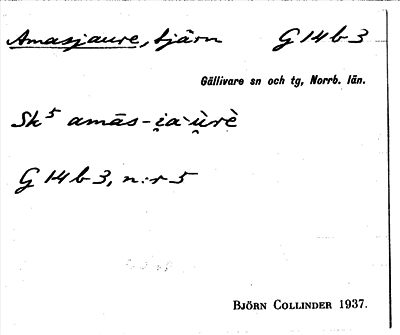 Amasjaure, tjärn G 14 b 3
Gällivare sn och tg, Norrb. län.
Sk⁵ amās-i̯a`u̯̇rè
G 14 b 3, n:r 5
BJÖRN COLLINDER 1937.